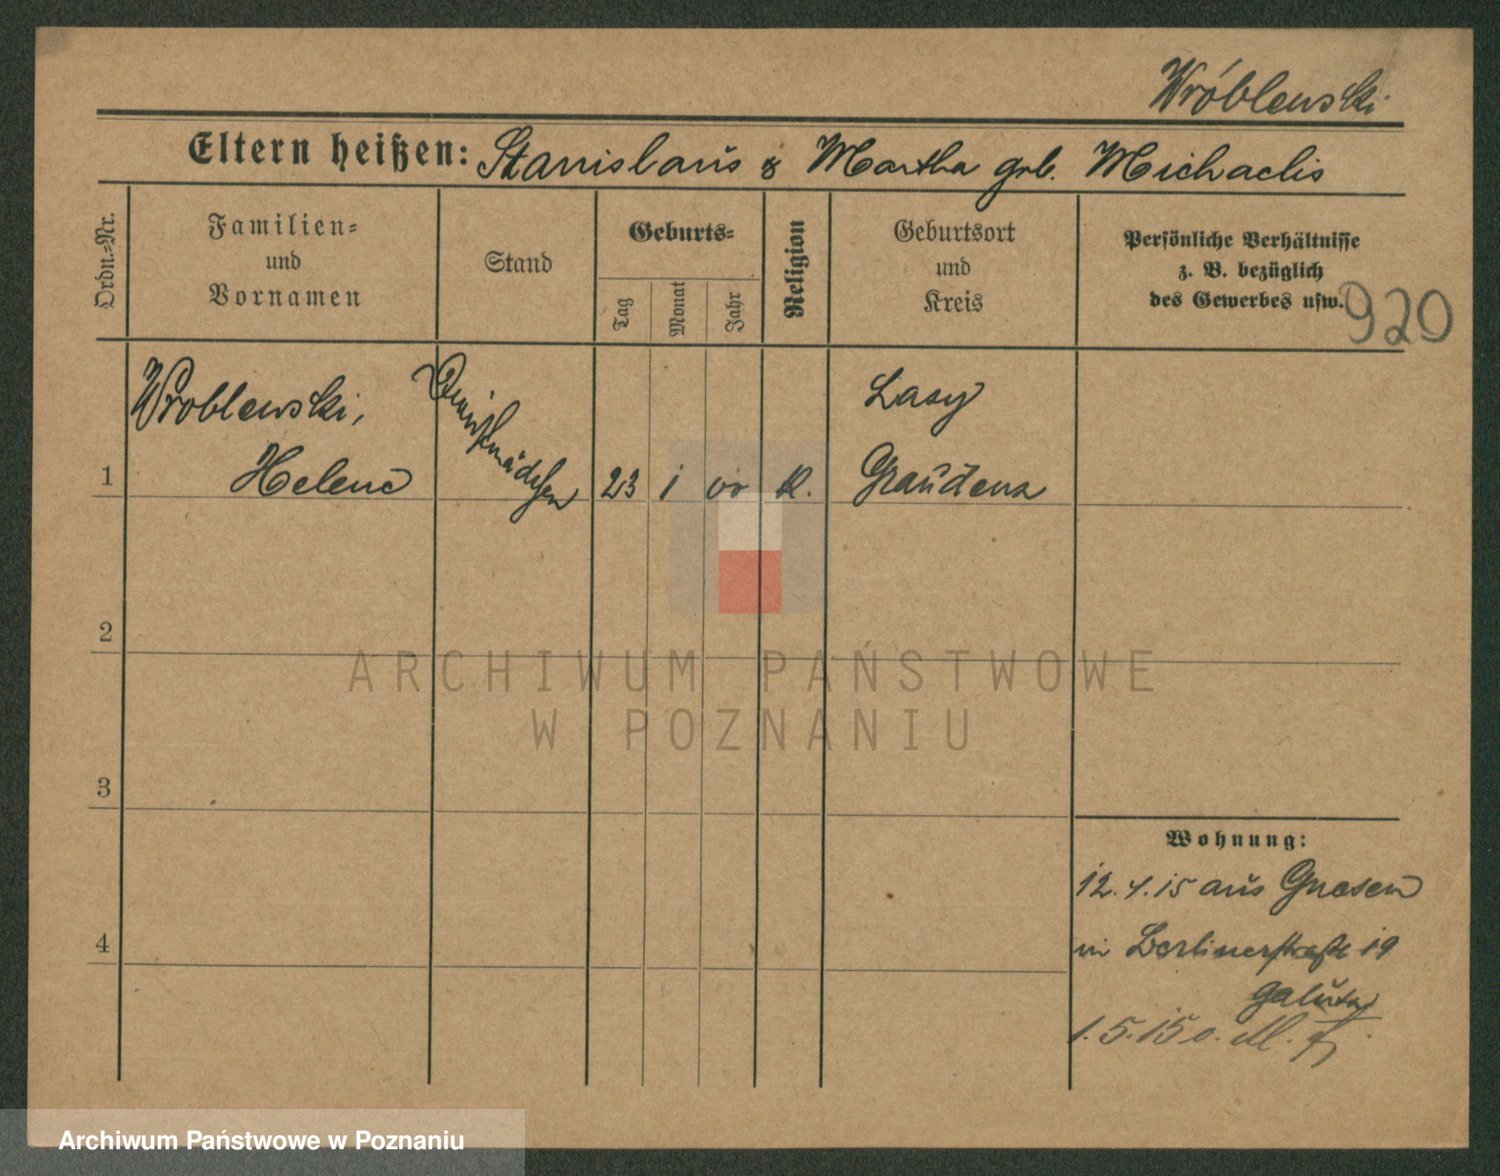 Wróblewski
Eltern heißen: Stanislaus & Martha geb. Michaelis
Ordn.-Nr.
Familien-
und
Vornamen
Stand
Geburts-
Tag
Monat
Jahr
Religion
Geburtsort
und
Kreis
Persönliche Verhältnisse
z. B. bezüglich
des Gewerbes usw.
920
1
Wroblewski,
Helene
Dienstmädchen
23
1
00
K.
Lasy
Graudenz
2
3
4
Wohnung:
12.4.15 aus Gnesen
in Berlinerstraße 19
Galuta
1.5.15 o.
ARCHIWUM PAŃSTWOWE
W POZNANIU
Archiwum Państwowe w Poznaniu